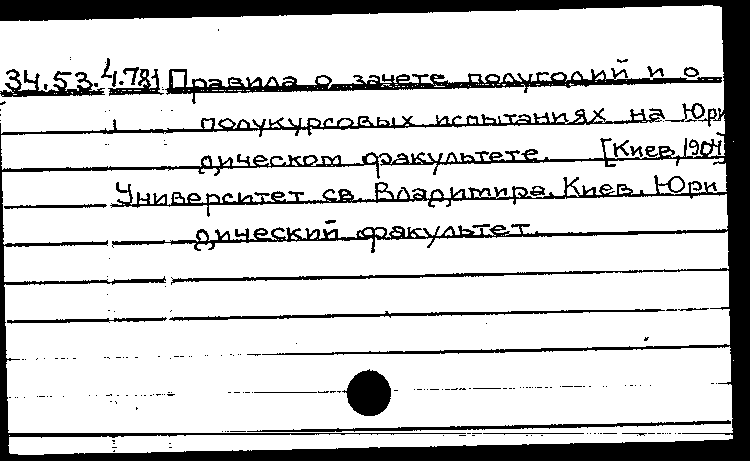 34.53.4.781 Правила о зачете полугодий и о
полукурсовых испытаниях на Юри
дическом факультете. [Киев, 1904]
Университет св. Владимира. Киев. Юри
дический факультет.